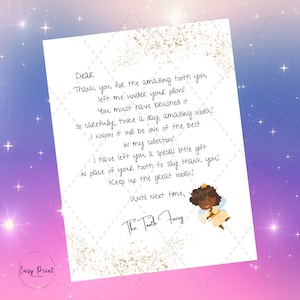 Dear
Thank you for the amazing tooth you
left me under your pillow!
You must have brushed it
so carefully, twice a day, amazing work!
I know it will be one of the best
in my collection!
I have left you a special little gift
in place of your tooth to say, thank you!
Keep up the great work!
Until next time,
The Tooth Fairy
Easy Print